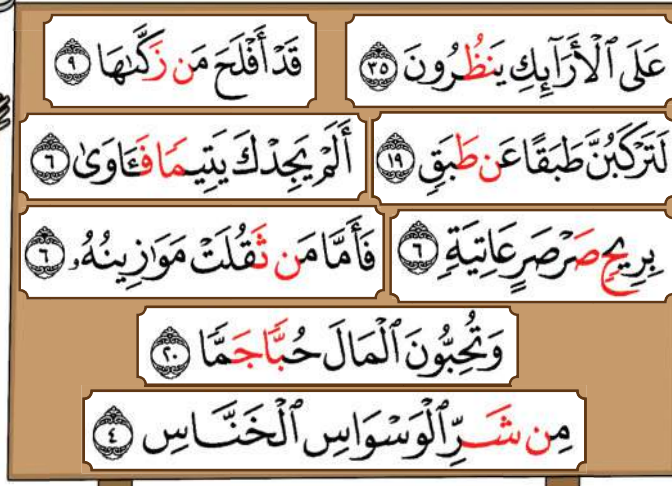 عَلَى ٱلْأَرَآئِكِ يَنظُرُونَ ٣٥
قَدْ أَفْلَحَ مَن زَكَّىٰهَا ٩
لَتَرْكَبُنَّ طَبَقًا عَن طَبَقٍ ١٩
أَلَمْ يَجِدْكَ يَتِيمًا فَـَٔاوَىٰ ٦
بِرِيحٍ صَرْصَرٍ عَاتِيَةٍ ٦
فَأَمَّا مَن ثَقُلَتْ مَوَٰزِينُهُۥ ٦
وَتُحِبُّونَ ٱلْمَالَ حُبًّا جَمًّا ٢٠
مِن شَرِّ ٱلْوَسْوَاسِ ٱلْخَنَّاسِ ٤